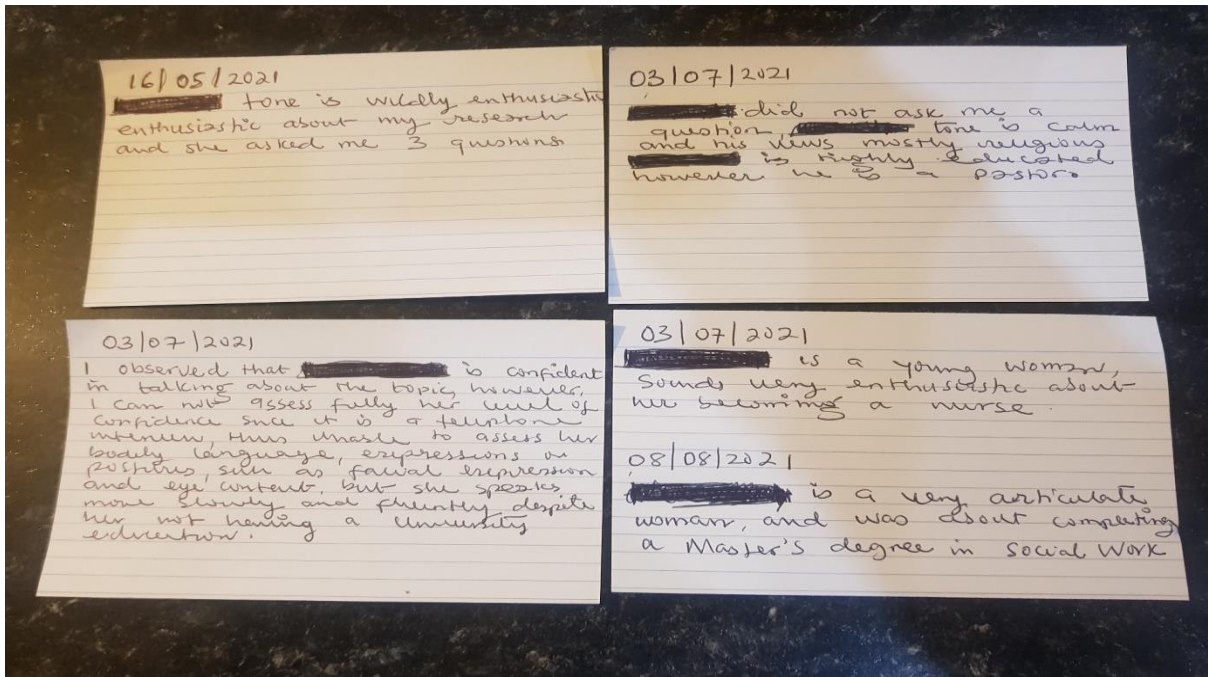 16/05/2021
tone is wildly enthusiastic
enthusiastic about my research
and she asked me 3 questions
03/07/2021
did not ask me a
question, tone is calm
and his views mostly religious
is highly educated
however he is a pastor.
03/07/2021
I observed that is confident
in talking about the topic, however,
I can not assess fully her level of
confidence since it is a telephone
interview, thus unable to assess her
bodily language, expressions or
postures, such as facial expression
and eye, content, but she speaks
more slowly and fluently despite
her not having a University
education.
03/07/2021
is a young woman,
Sounds very enthusiastic about
her becoming a nurse.
08/08/2021
is a very articulate
woman, and was about completing
a Master's degree in Social Work